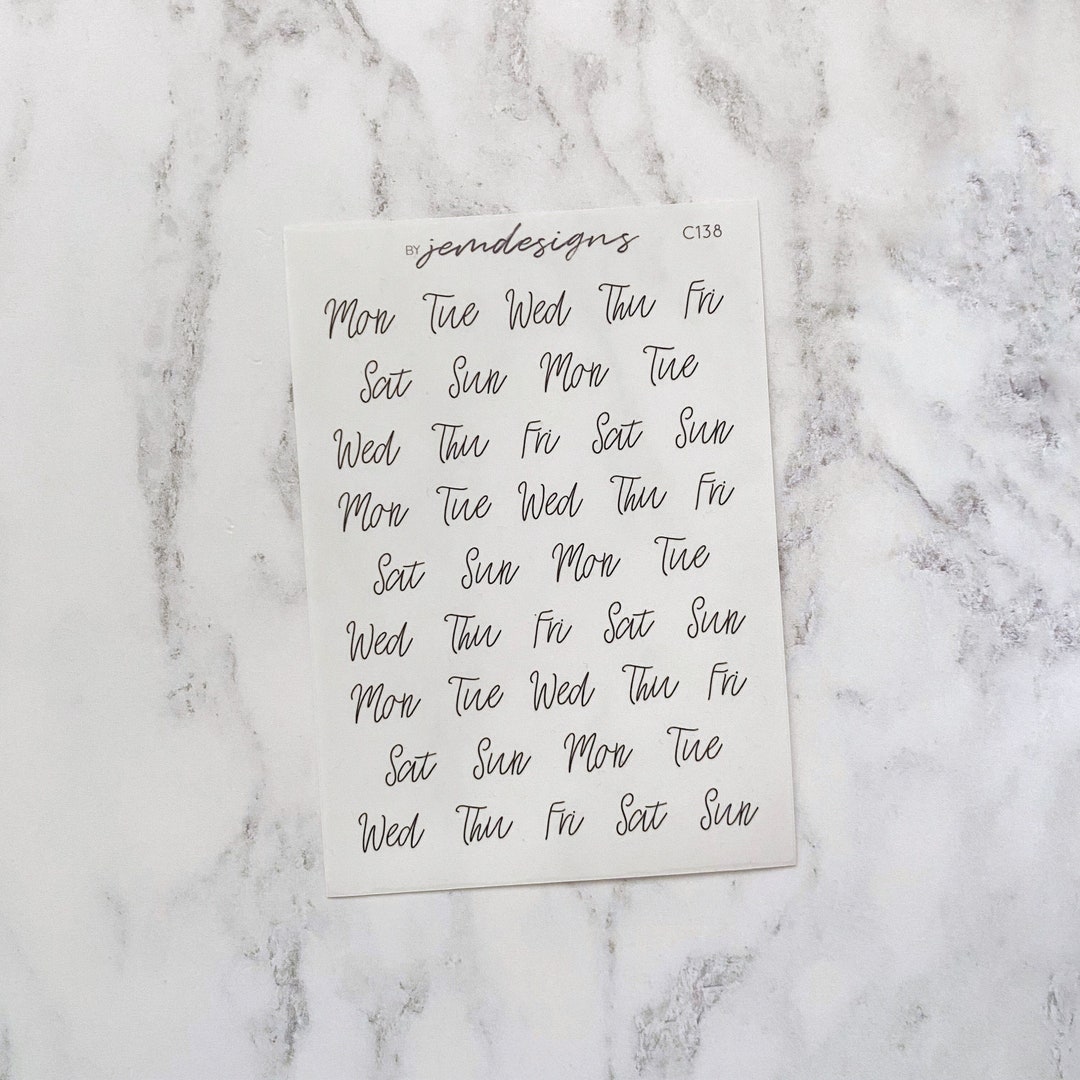 BY jemdesigns C138
Mon Tue Wed Thu Fri
Sat Sun Mon Tue
Wed Thu Fri Sat Sun
Mon Tue Wed Thu Fri
Sat Sun Mon Tue
Wed Thu Fri Sat Sun
Mon Tue Wed Thu Fri
Sat Sun Mon Tue
Wed Thu Fri Sat Sun